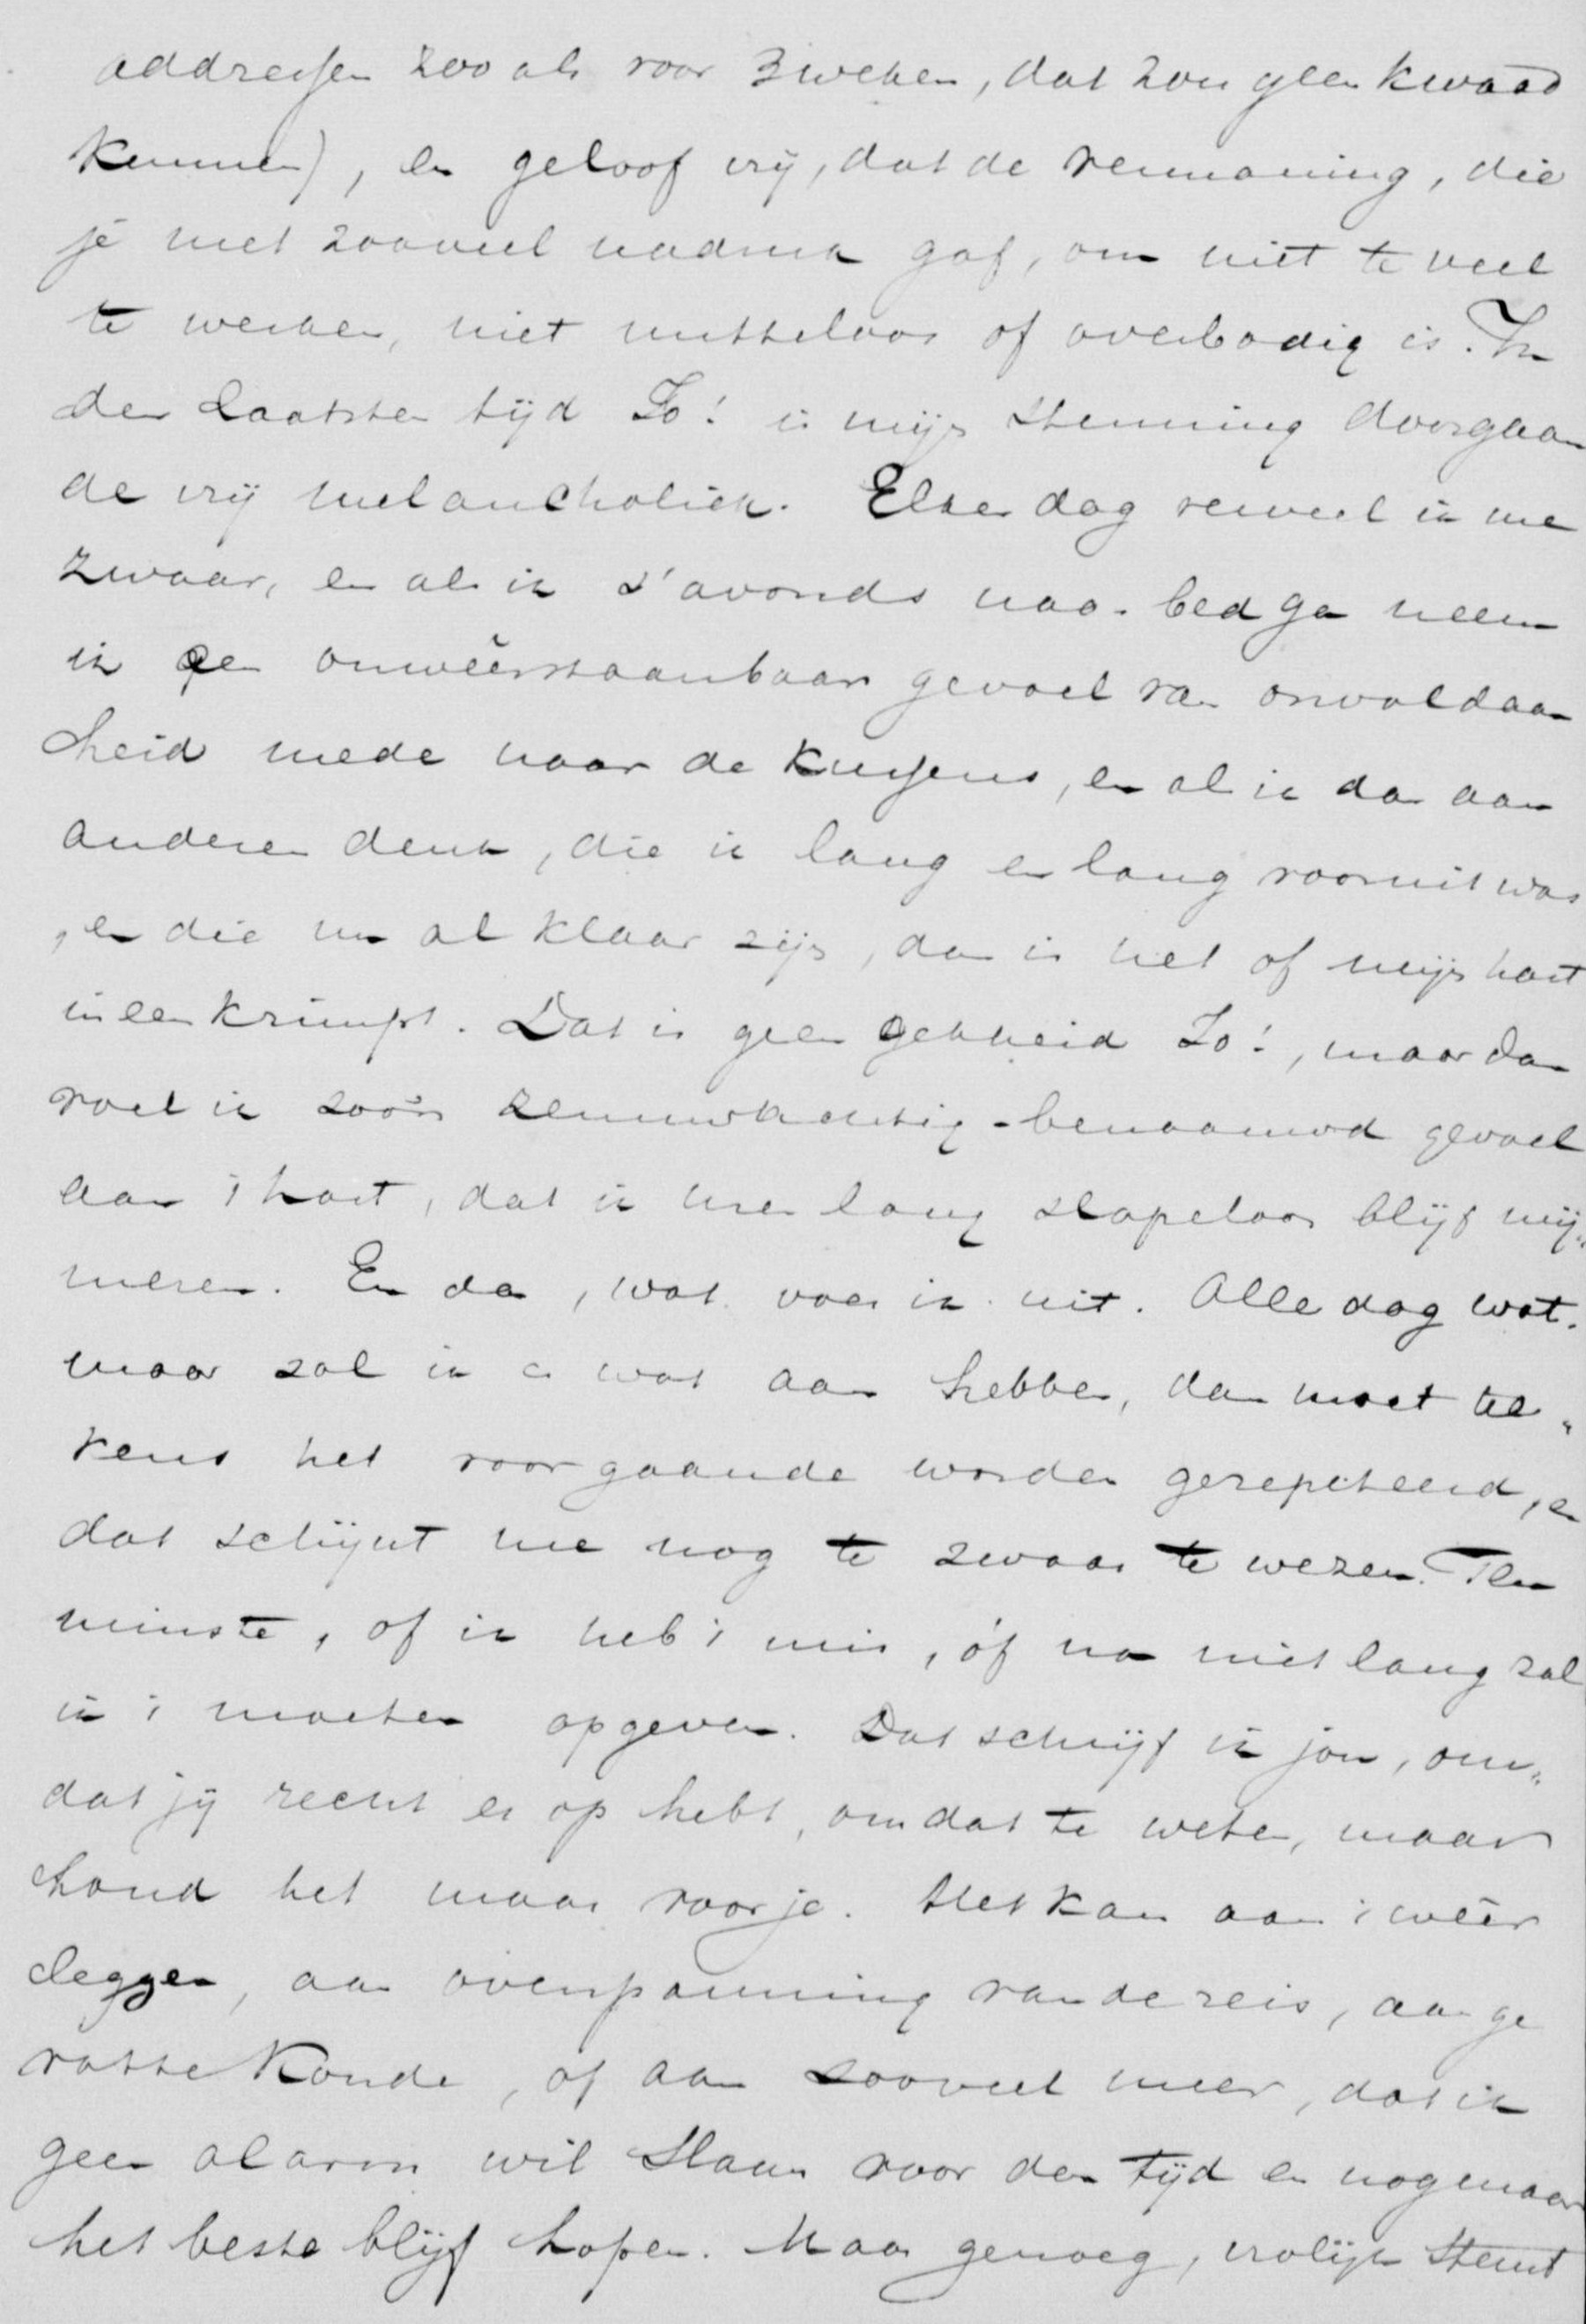 addressen zooals voor 3 weken, dat zou geen kwaad
kunnen), en geloof vrij, dat de vermaning, die
je met zooveel nadruk gaf, om niet te veel
te werken, niet nutteloos of overbodig is. In
den laatsten tijd Jo! is mijn stemming doorgaan
de vrij melancholiek. Elken dag verveel ik me
zwaar, en als ik s'avonds naar bed ga neem
ik een onweêrstaanbaar gevoel van onvoldaan
heid mede naar de kussens, en als ik dan aan
anderen denk, die ik lang en lang vooruit was
, en die nu al klaar zijn, dan is het of mijn hart
ineen krimpt. Dat is geen gekheid Jo!, maar dan
voel ik zoo'n zenuwachtig-benaauwd gevoel
aan 't hart, dat ik uren lang slapeloos blijf mij„
meren. En dan, wat voer ik uit. Alle dag wat.
maar zal ik er wat aan hebben, dan moet tel„
kens het voorgaande worden gerepeteerd, en
dat schijnt me nog te zwaar te wezen. Ten
minste, of ik heb 't mis, óf na niet lang zal
ik 't moeten opgeven. Dat schrijf ik jou, om„
dat jij recht er op hebt, om dat te weten, maar
houd het maar voor je. Het kan aan 't weêr
leggen, aan overspanning van de reis, aan ge
vatte koude, of aan zooveel meer, dat ik
geen alarm wil slaan voor den tijd en nog maar
het beste blijf hopen. Maar genoeg, vrolijk stemt